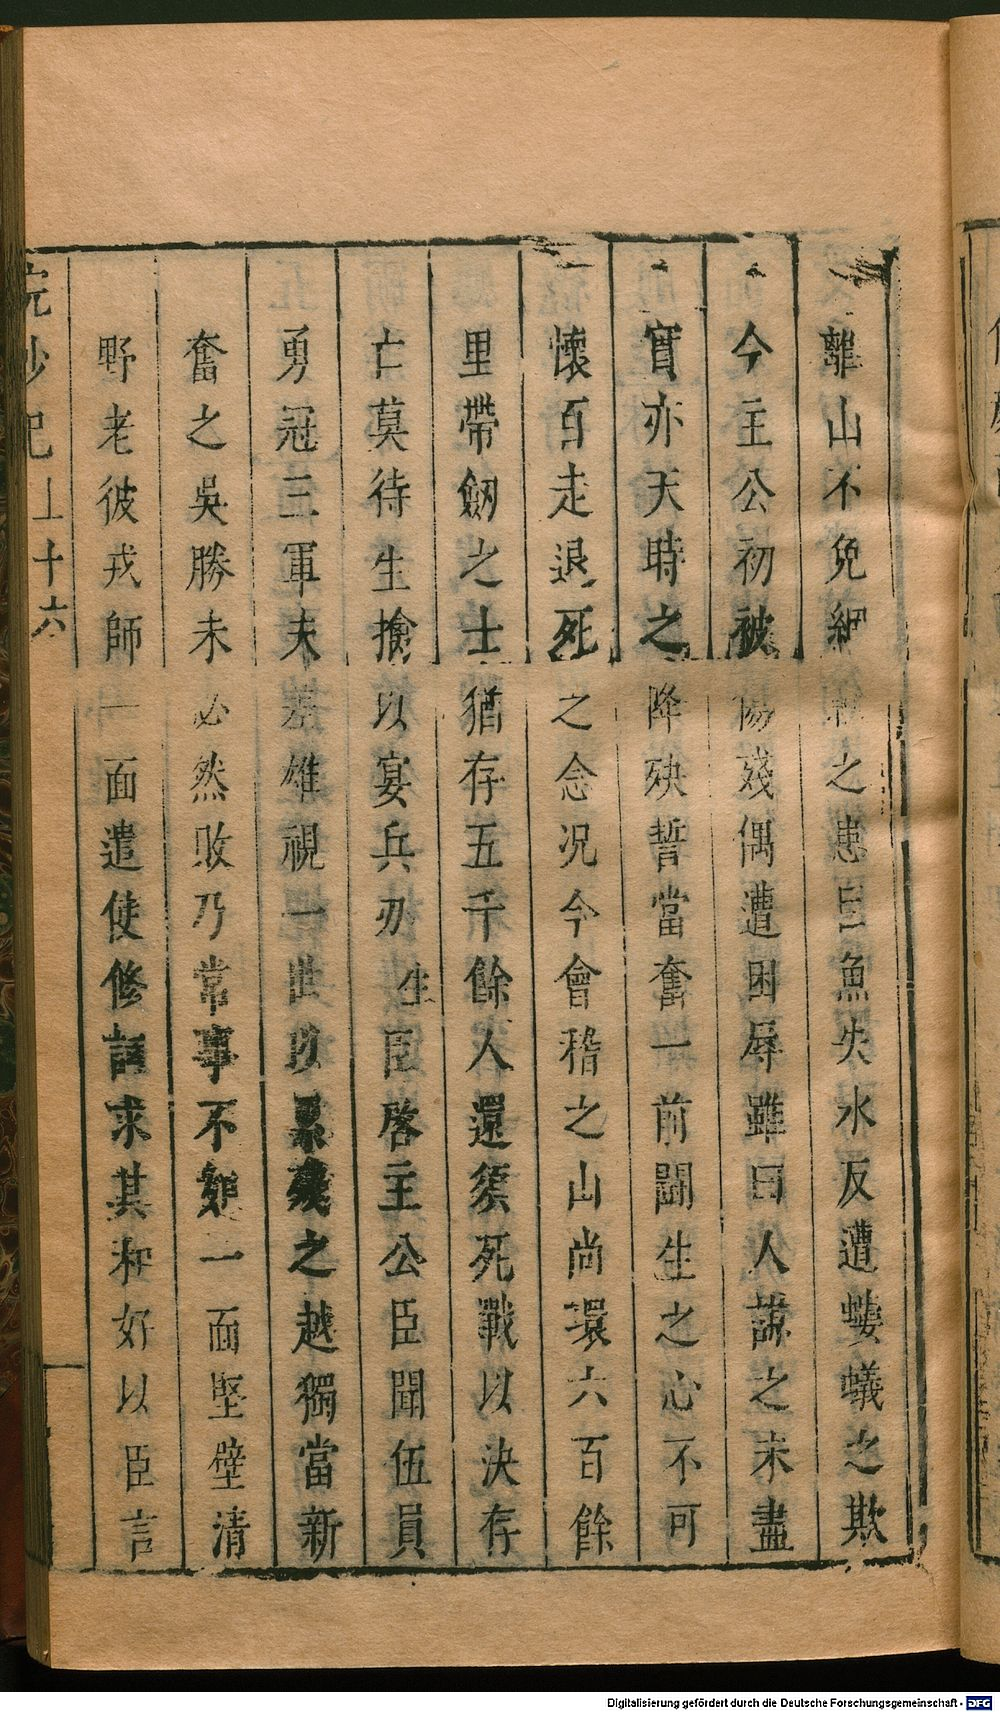 離山不免網羅之患巨魚失水反遭螻蟻之欺
今主公初被傷殘偶遭困辱雖曰人謀之未盡
實亦天時之降殃誓當奮一前鬪生之心不可
懷百走退死之念况今會稽之山尚環六百餘
里帶劒之士猶存五千餘人還須死戰以決存
亡莫待生擒以宴兵刃 生臣啓主公臣聞伍員
勇冠三軍夫差雄視一世以累殘之越獨當新
奮之吳勝未必然敗乃常事不如一面堅壁清
野老彼戎師一面遣使修詞求其和好以臣言
浣紗記 上 十六
Digitalisierung gefördert durch die Deutsche Forschungsgemeinschaft - DFG